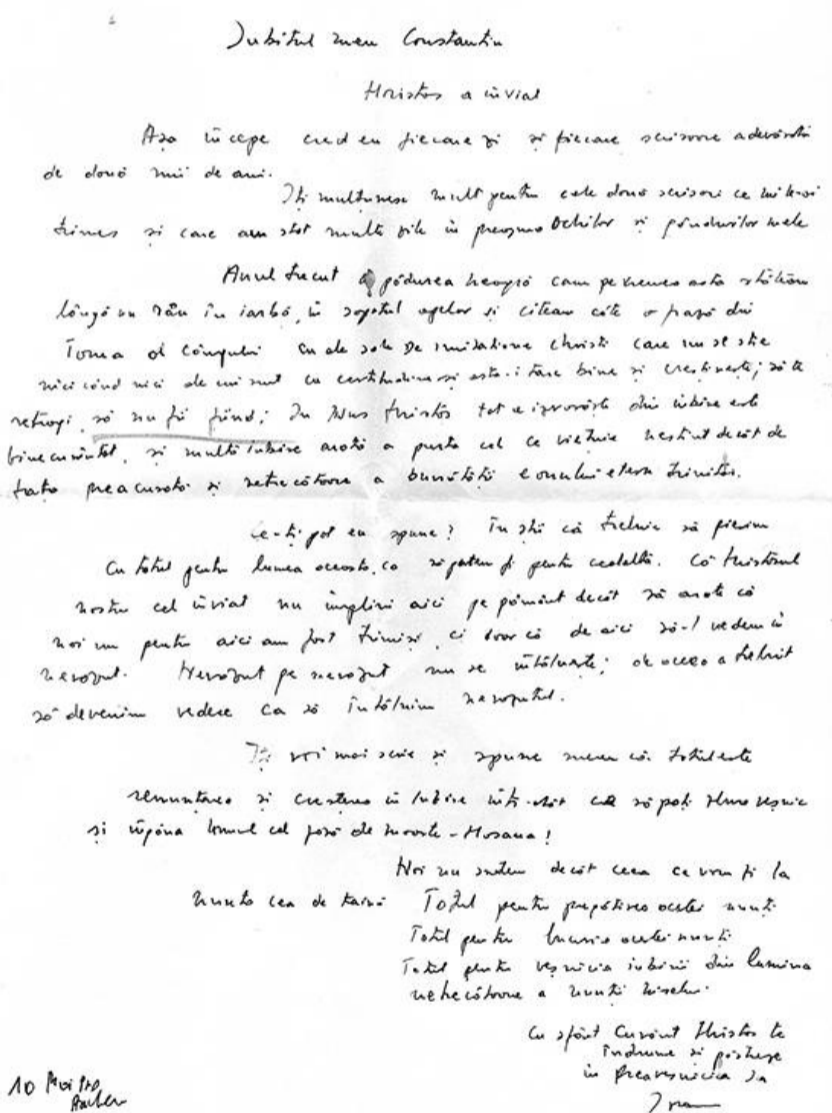 Iubitul meu Constantin
Hristos a înviat
Așa începe cred eu fiecare zi și fiecare scrisoare adevărată
de două mii de ani.
Îți mulțumesc mult pentru cele două scrisori ce mi le-ai
trimes și care au stat multe zile în preajma ochilor și gândurilor mele
Anul trecut pădurea neagră cam pe vremea asta stăteam
lângă un râu în iarbă, în șopotul apelor și citeam câte o frază din
Toma al cale De imitatione Christi care nu se știe
nicicând nici de cu certitudine și asta-i tare bine și creștinește; să te
retragi, să nu fii fiind; În Hristos tot ce izvorăște din iubire este
binecuvântat, și multă iubire arată a purta cel ce viețuie decât de
preacurata și a bunătății etern
Ce-ți pot eu spune? Tu știi că trebuie să pierim
Cu totul pentru lumea aceasta, ca să putem fi pentru cealaltă. Că Hristosul
nostru cel înviat nu împlini aici pe pământ decât să arate că
noi nu pentru aici am fost trimiși, ci doar că de aici să-l vedem în
nevăzut. Nevăzut pe nevăzut nu se întâlnește; de aceea a trebuit
să devenim vedere ca să întâlnim nevăzutul.
Îți voi mai scrie și spune mereu că totul este
renunțarea și creșterea în iubire într-atât să poți veșnic
și îngâna imnul cel fără de moarte – Hosana!
Noi nu suntem decât ceea ce vom fi la
nunta cea de taină Totul pentru pregătirea acestei nunți
Totul pentru bucuria acestei nunți
Totul pentru veșnicia iubirii din lumina
netrecătoare a nunții
Cu sfânt Cuvânt Hristos te
îndrume și păstreze
în preaveșnicia Sa
10 Mai